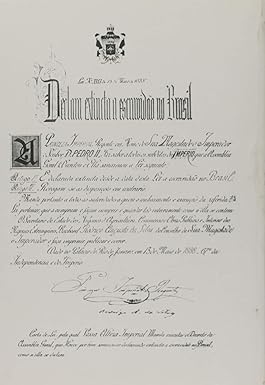 Lei 3353 de 13 de Maio de 1888.
Declara extincta a escravidão no Brasil
A Princeza Imperial Regente em Nome de Sua Magestade o Imperador
Senhor D. PEDRO II, Faz saber a todos os subditos do IMPERIO que a Assembléa
Geral Decretou e Ella sanccionou a Lei seguinte:
Artigo 1º É declarada extincta desde a data desta Lei a escravidão no Brasil.
Artigo 2º Revogam-se as disposições em contrario.
Manda portanto a todas as autoridades a quem o conhecimento e execução da referida
Lei pertencer, que a cumpram e façam cumprir e guardar tão inteiramente como nella se contém.
O Secretario de Estado dos Negocios d'Agricultura, Commercio e Obras Publicas e Interino dos
Negocios Estrangeiros, Bacharel Rodrigo Augusto da Silva do Conselho de Sua Magestade
o Imperador o faça imprimir, publicar e correr.
Dado no Palacio do Rio de Janeiro, em 13 de Maio de 1888, 67º da
Independencia e do Imperio.
Princeza Imperial Regente
Rodrigo A. da Silva
Carta de Lei, pela qual Vossa Alteza Imperial Manda executar o Decreto da
Assembléa Geral, que Houve por bem sanccionar declarando extincta a escravidão no Brasil,
como nella se declara.